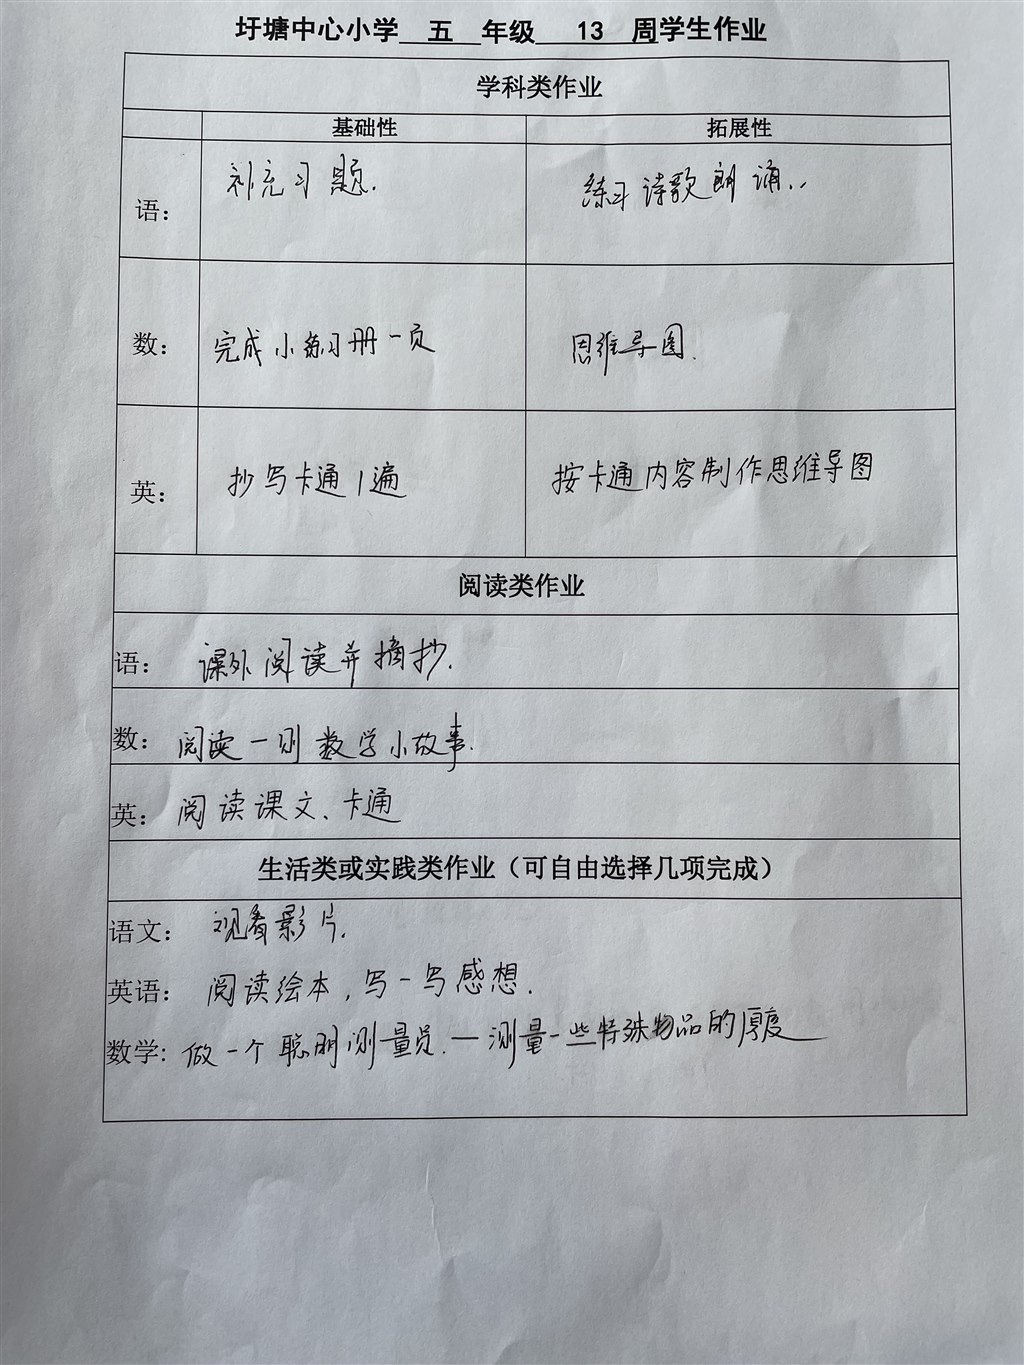 圩塘中心小学 五 年级 13 周学生作业
学科类作业
基础性 拓展性
语： 补充习题. 练习诗歌朗诵..
数： 完成小练习册一页 思维导图.
英： 抄写卡通1遍 按卡通内容制作思维导图
阅读类作业
语： 课外阅读并摘抄.
数： 阅读一则数学小故事.
英： 阅读课文、卡通
生活类或实践类作业（可自由选择几项完成）
语文： 观看影片.
英语： 阅读绘本，写一写感想.
数学: 做一个聪明测量员.—测量一些特殊物品的厚度